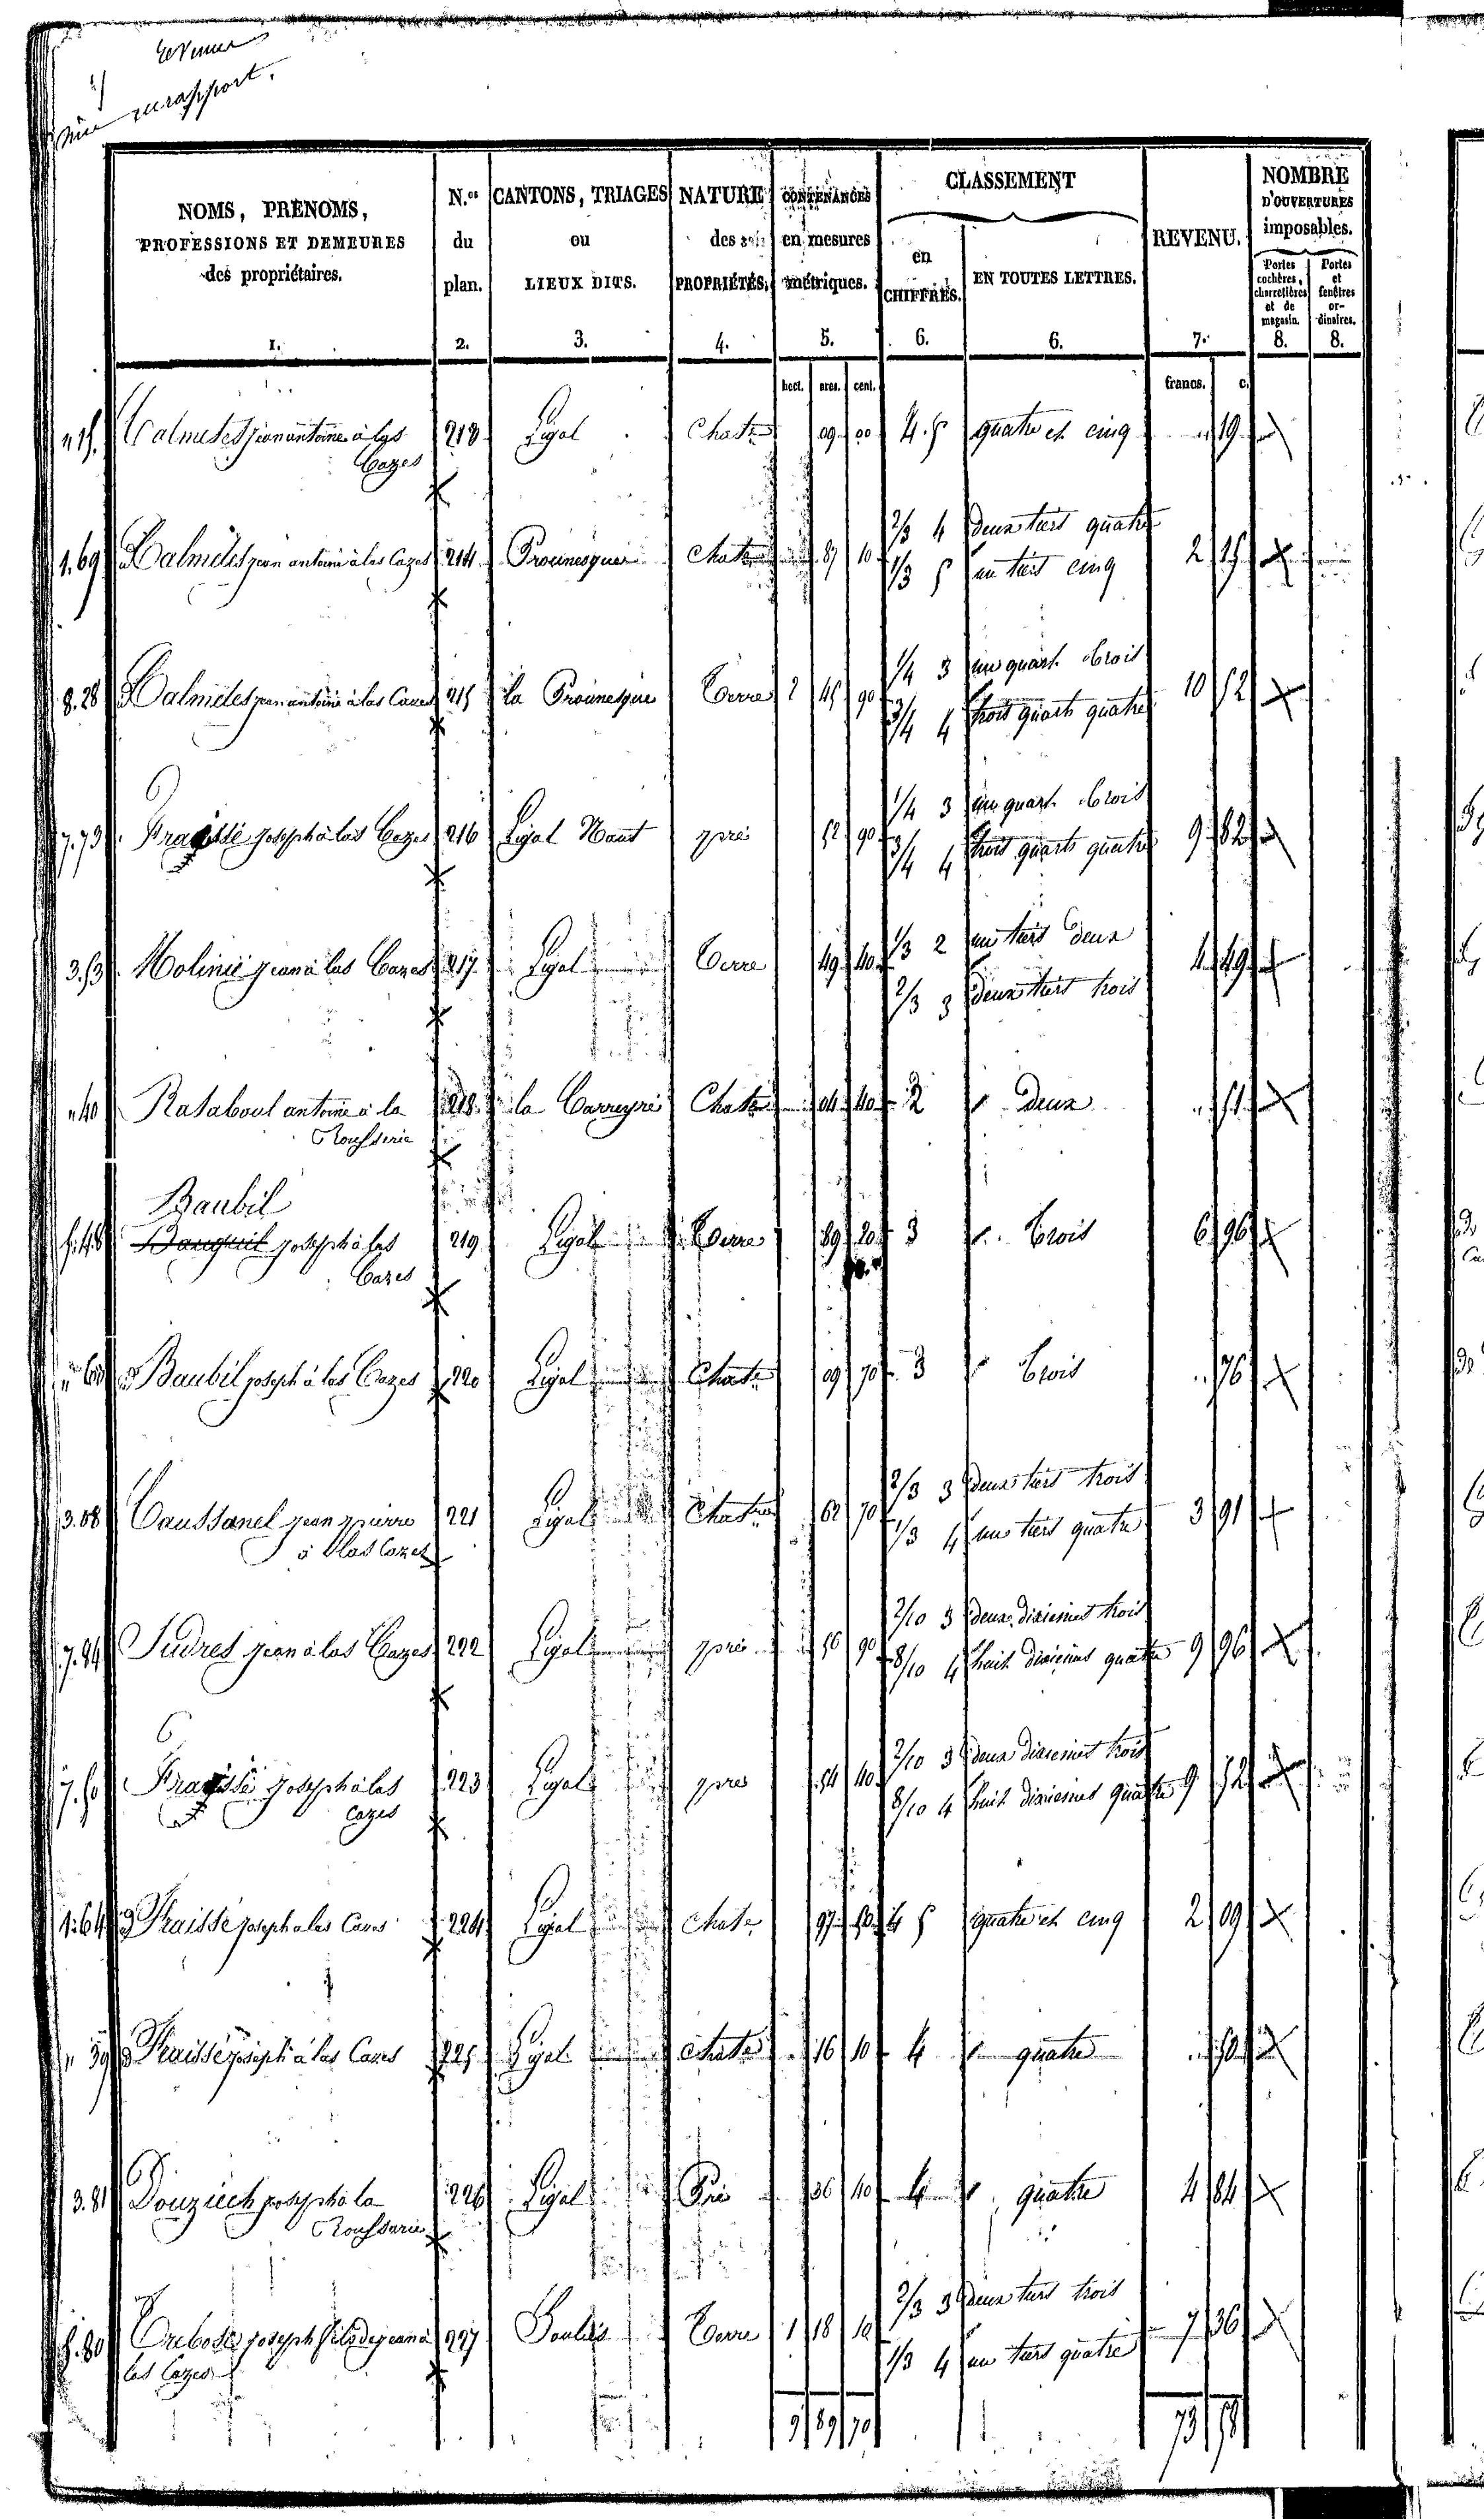 Revenu
rapport.
NOMS, PRÉNOMS, PROFESSIONS ET DEMEURES des propriétaires. 1.
N.os du plan. 2.
CANTONS, TRIAGES ou LIEUX DITS. 3.
NATURE des PROPRIÉTÉS. 4.
CONTENANCES en mesures métriques. 5.
CLASSEMENT
en CHIFFRES. 6.
EN TOUTES LETTRES. 6.
REVENU. 7.
NOMBRE D'OUVERTURES imposables.
Portes cochères, charretières et de magasin. 8.
Portes et fenêtres ordinaires. 8.
hect. ares. cent. francs. c.
Calmetes jean antoine à las 213 Ligal Chatr 09 00 4.5 quatre et cinq 19
Cazes
2/3 4 deux tiers quatre
1.69 Calmetes jean antoine à las Cazes 214 Chatr 87 10 2
1/3 5 un tiers cinq
1/4 3 un quart trois
8.28 Calmetes jean antoine à las Cazes 215 la Terre 2 45 90 10 52
3/4 4 trois quarts quatre
1/4 3 un quart trois
7.73 Fraissé joseph à las Cazes 216 Ligal Haut pré 52 90 9 82
3/4 4 trois quarts quatre
1/3 2 un tiers deux
3.53 Molinié jean à las Cazes 217 Ligal Terre 49 40 4 49
2/3 3 deux tiers trois
40 Rataboul antoine à la 218 la Carreyre Chatr 04 40 2 deux 51
Baubil
joseph à las 219 Ligal Terre 89 20 3 trois 6 96
Cazes
Baubil joseph à las Cazes 220 Ligal Chatr 09 70 3 trois 76
2/3 3 deux tiers trois
3.08 Caussanel jean pierre 221 Ligal Chatr 62 70 3 91
à las Cazes 1/3 4 un tiers quatre
2/10 3 deux dixiemes trois
7.84 Sudres jean à las Cazes 222 Ligal pré 56 90 9 96
8/10 4 huit dixiemes quatre
2/10 3 deux dixiemes trois
7.50 Fraissé joseph à las 223 Ligal pré 54 40 9 52
Cazes 8/10 4 huit dixiemes quatre
1.64 Fraissé joseph à las Cazes 224 Ligal Chatr 97 50 4 5 quatre et cinq 2 09
39 Fraissé joseph à las Cazes 225 Ligal Chatr 16 10 4 quatre 50
3.81 Douziech joseph à la 226 Ligal Pré 36 40 4 quatre 4 84
2/3 3 deux tiers trois
5.80 joseph fils de jean à 227 Terre 1 18 10 7 36
las Cazes 1/3 4 un tiers quatre
9 89 70 73